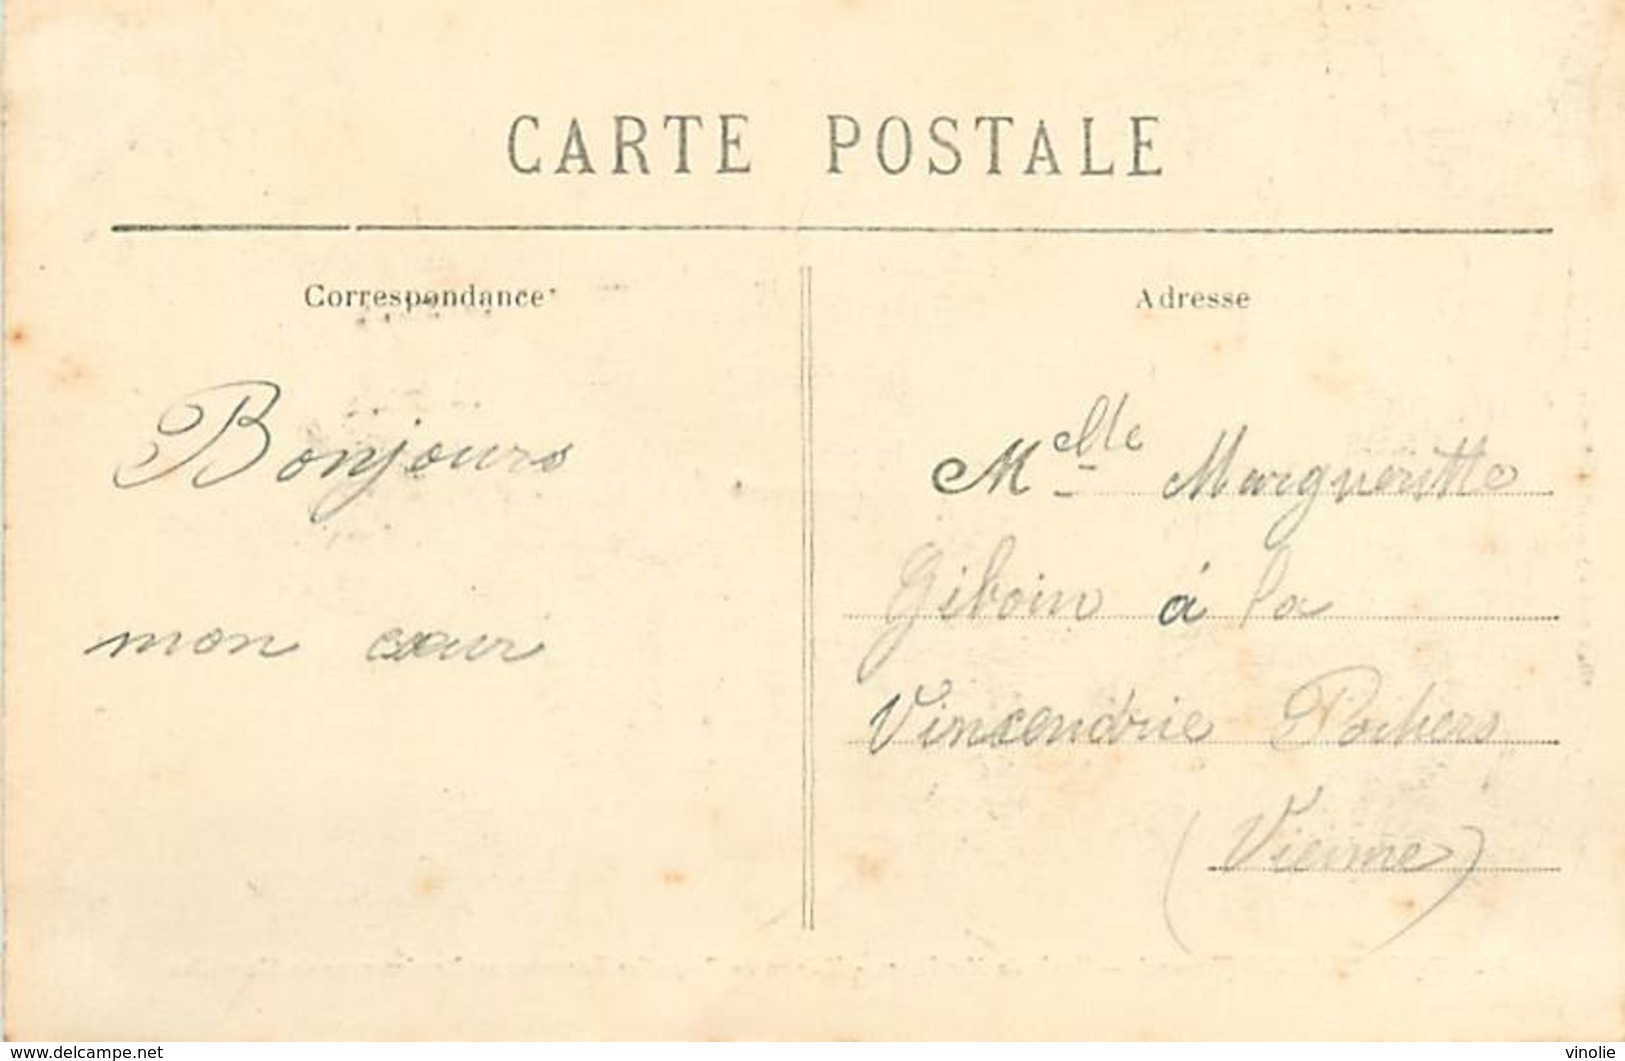 CARTE POSTALE
Correspondance
Bonjours
mon cœur
Adresse
Melle Margueritte
Giboin á la
Vincendrie Poitiers
(Vienne)
www.delcampe.net
vinolie